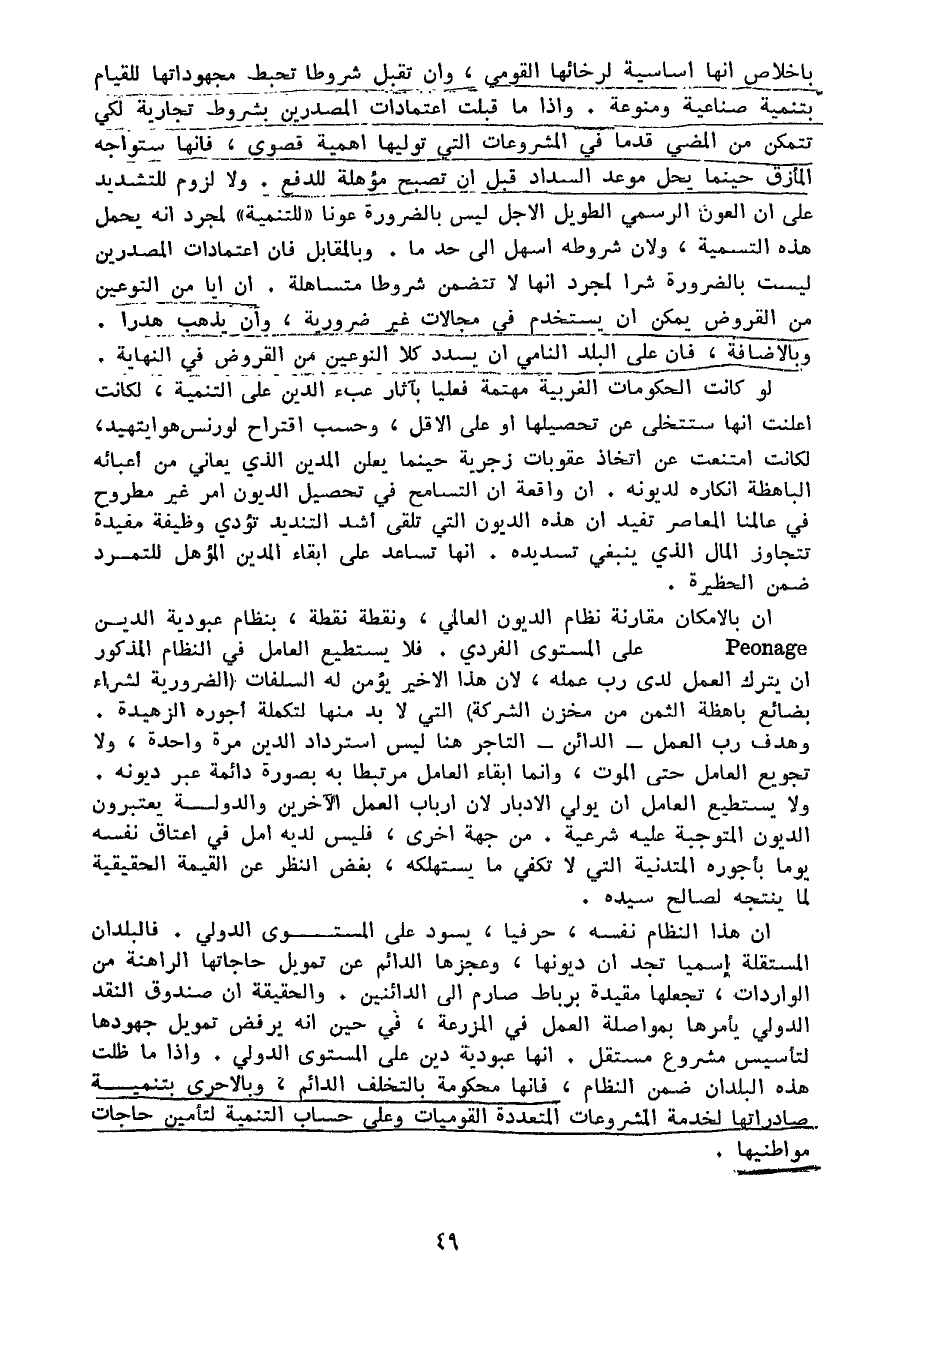 باخلاص انها اساسية لرخائها القومي ، وان تقبل شروطا تحبط مجهوداتها للقيام
بتنمية صناعية ومنوعة . واذا ما قبلت اعتمادات المصدرين بشروط تجارية لكي
تتمكن من المضي قدما في المشروعات التي توليها اهمية قصوى ، فانها ستواجه
المأزق حينما يحل موعد السداد قبل ان تصبح مؤهلة للدفع . ولا لزوم للتشديد
على ان العون الرسمي الطويل الاجل ليس بالضرورة عونا «للتنمية» لمجرد انه يحمل
هذه التسمية ، ولان شروطه اسهل الى حد ما . وبالمقابل فان اعتمادات المصدرين
ليست بالضرورة شرا لمجرد انها لا تتضمن شروطا متساهلة . ان ايا من النوعين
من القروض يمكن ان يستخدم في مجالات غير ضرورية ، وأن يذهب هدرا .
وبالاضافة ، فان على البلد النامي ان يسدد كلا النوعين من القروض في النهاية .
لو كانت الحكومات الغربية مهتمة فعليا بآثار عبء الدين على التنمية ، لكانت
اعلنت انها ستتخلى عن تحصيلها او على الاقل ، وحسب اقتراح لورنس هوايتهيد،
لكانت امتنعت عن اتخاذ عقوبات زجرية حينما يعلن المدين الذي يعاني من أعبائه
الباهظة انكاره لديونه . ان واقعة ان التسامح في تحصيل الديون امر غير مطروح
في عالمنا المعاصر تفيد ان هذه الديون التي تلقى أشد التنديد تؤدي وظيفة مفيدة
تتجاوز المال الذي ينبغي تسديده . انها تساعد على ابقاء المدين المؤهل للتمرد
ضمن الحظيرة .
ان بالامكان مقارنة نظام الديون العالمي ، ونقطة نقطة ، بنظام عبودية الدين
Peonage على المستوى الفردي . فلا يستطيع العامل في النظام المذكور
ان يترك العمل لدى رب عمله ، لان هذا الاخير يؤمن له السلفات (الضرورية لشراء
بضائع باهظة الثمن من مخزن الشركة) التي لا بد منها لتكملة أجوره الزهيدة .
وهدف رب العمل – الدائن – التاجر هنا ليس استرداد الدين مرة واحدة ، ولا
تجويع العامل حتى الموت ، وانما ابقاء العامل مرتبطا به بصورة دائمة عبر ديونه .
ولا يستطيع العامل ان يولي الادبار لان ارباب العمل الآخرين والدولة يعتبرون
الديون المتوجبة عليه شرعية . من جهة اخرى ، فليس لديه امل في اعتاق نفسه
يوما بأجوره المتدنية التي لا تكفي ما يستهلكه ، بغض النظر عن القيمة الحقيقية
لما ينتجه لصالح سيده .
ان هذا النظام نفسه ، حرفيا ، يسود على المستوى الدولي . فالبلدان
المستقلة إسميا تجد ان ديونها ، وعجزها الدائم عن تمويل حاجاتها الراهنة من
الواردات ، تجعلها مقيدة برباط صارم الى الدائنين . والحقيقة ان صندوق النقد
الدولي يأمرها بمواصلة العمل في المزرعة ، في حين انه يرفض تمويل جهودها
لتأسيس مشروع مستقل . انها عبودية دين على المستوى الدولي . واذا ما ظلت
هذه البلدان ضمن النظام ، فانها محكومة بالتخلف الدائم ؛ وبالاحرى بتنمية
صادراتها لخدمة المشروعات المتعددة القوميات وعلى حساب التنمية لتأمين حاجات
مواطنيها .
٤٩